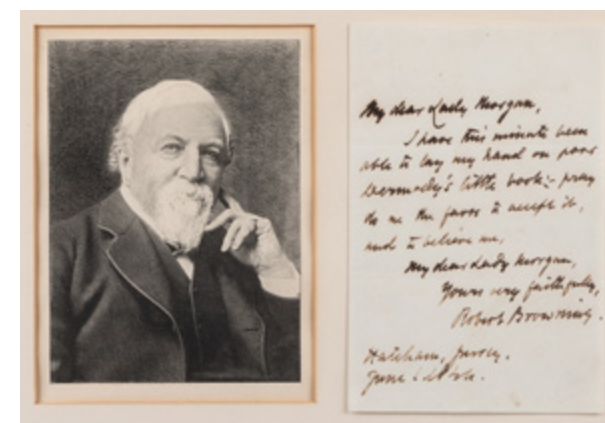 My dear Lady Morgan,
I have this minute been
able to lay my hand on poor
Dermody's little book:- pray
do me the favor to accept it,
and to believe me,
My dear Lady Morgan,
Yours very faithfully,
Robert Browning.
Hatcham, Surrey.
June